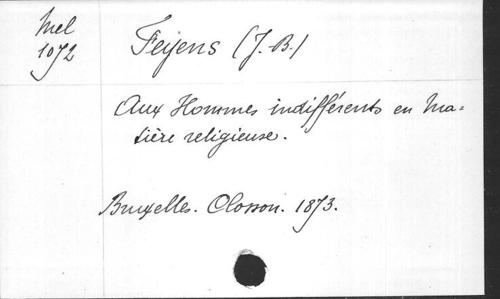 Mel
1072
Feyens (J.-B.)
Aux Hommes indifférents en ma=
tière religieuse.
Bruxelles. Closson. 1873.